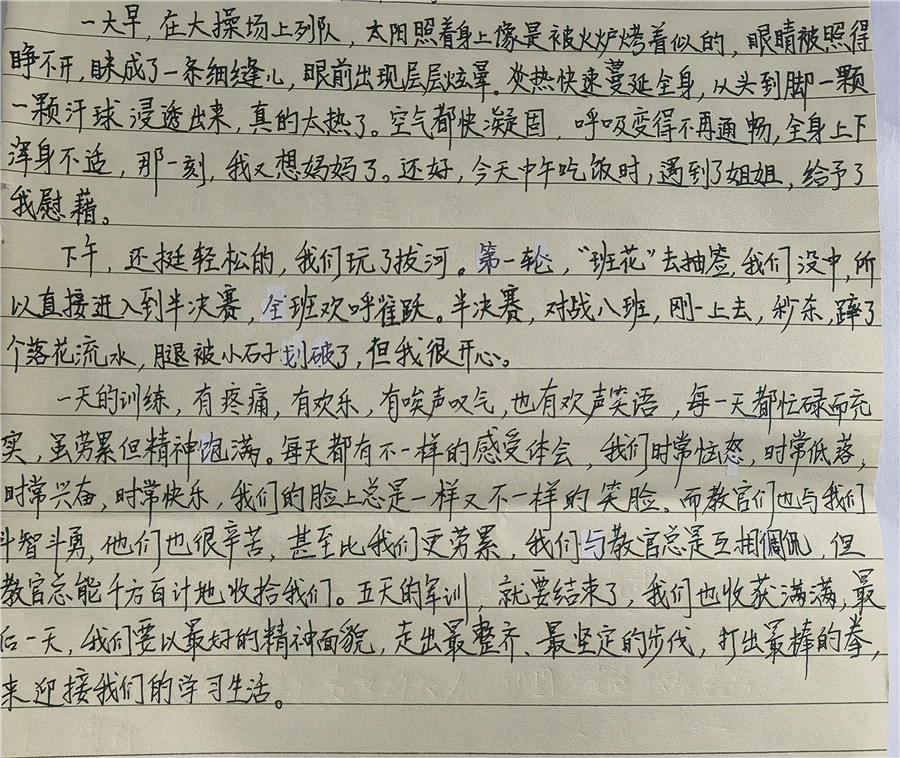 一大早，在大操场上列队，太阳照着身上像是被火炉烤着似的，眼睛被照得
睁不开，眯成了一条细缝儿，眼前出现层层炫晕。炎热快速蔓延全身，从头到脚一颗
一颗汗球浸透出来，真的太热了。空气都快凝固，呼吸变得不再通畅，全身上下
浑身不适，那一刻，我又想妈妈了。还好，今天中午吃饭时，遇到了姐姐，给予了
我慰藉。
下午，还挺轻松的，我们玩了拔河。第一轮，“班花”去抽签，我们没中，所
以直接进入到半决赛，全班欢呼雀跃。半决赛，对战八班，刚一上去，秒杀，蹿了
个落花流水，腿被小石子划破了，但我很开心。
一天的训练，有疼痛，有欢乐，有唉声叹气，也有欢声笑语，每一天都忙碌而充
实，虽劳累但精神饱满。每天都有不一样的感受体会，我们时常恼怒，时常低落，
时常兴奋，时常快乐，我们的脸上总是一样又不一样的笑脸。而教官们也与我们
斗智斗勇，他们也很辛苦，甚至比我们更劳累，我们与教官总是互相倜侃，但
教官总能千方百计地收拾我们。五天的军训，就要结束了，我们也收获满满，最
后一天，我们要以最好的精神面貌，走出最整齐、最坚定的步伐，打出最棒的拳，
来迎接我们的学习生活。